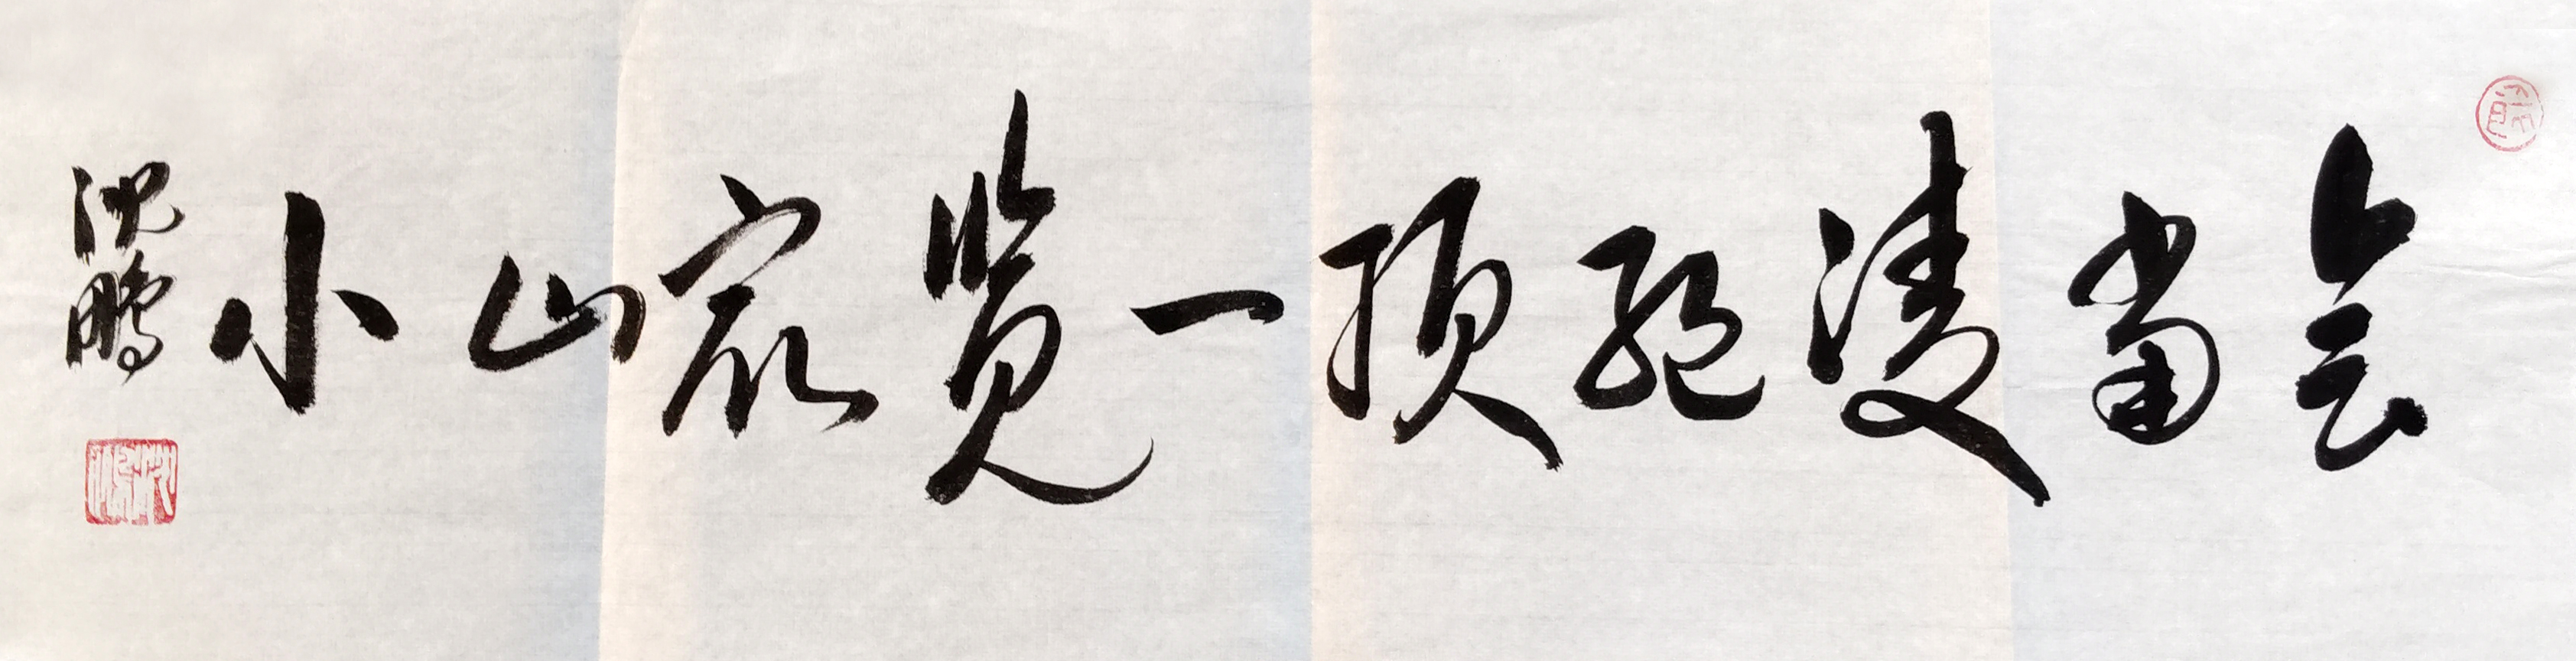 会当凌绝顶一览众山小
沈鹏